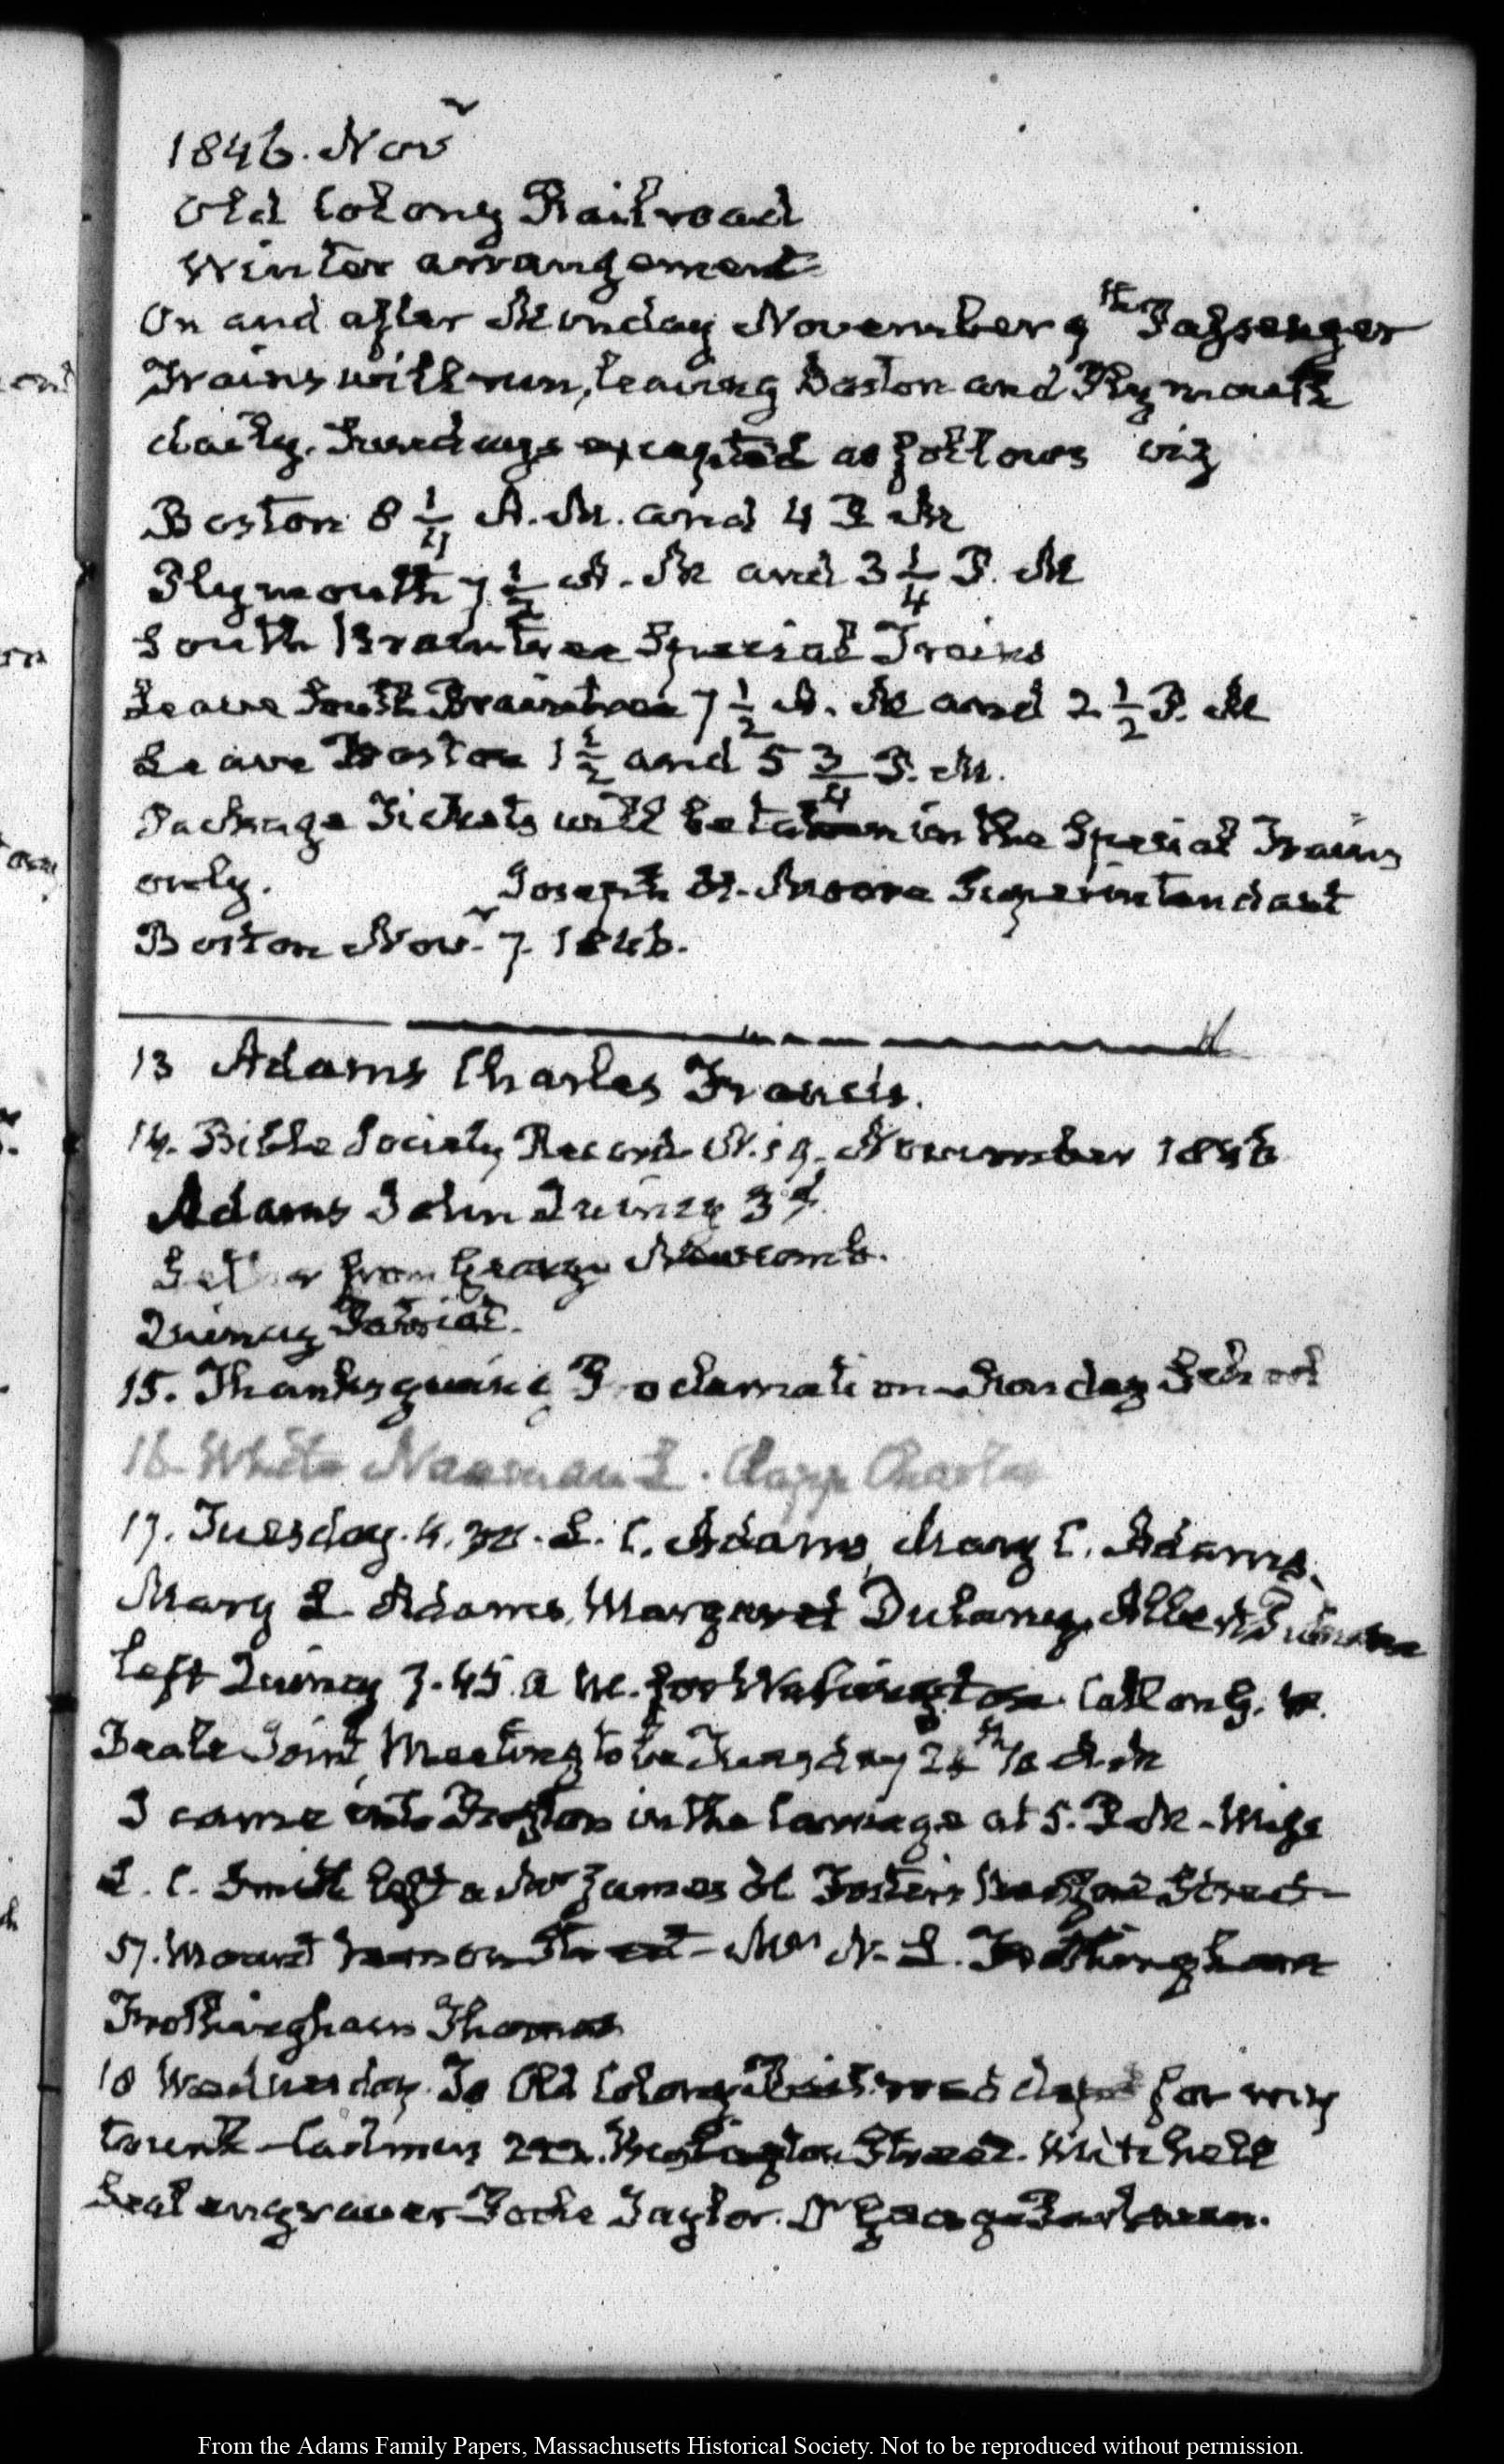 1846. Nov
Old Colony Railroad
Winter arrangement
On and after Monday November 9th Passenger
Trains will run, leaving Boston and Plymouth
daily. Sundays excepted as follows viz
Boston 8 1/4 A. M. and 4 P M
Plymouth 7 1/2 A. M and 3 1/4 P. M
South Braintree Special Trains
Leave South Braintree 7 1/2 A. M and 2 1/2 P. M
Leave Boston 1 1/2 and 5 3/4 P. M.
Package Tickets will be taken in the Special Trains
only. Joseph H. Moore Superintendant
Boston Nov. 7. 1846.
13 Adams Charles Francis.
14. Bible Society Record N. 19. November 1846
Adams John Quincy 3d.
Letter from George Newcomb.
Quincy Patriot.
15. Thanksgiving Proclamation Sunday School
16 White Naaman L. Clapp Charles
17. Tuesday. 4. 30. L. C. Adams, Mary C. Adams,
Mary L Adams, Margaret Dulaney, Albert
left Quincy 7.45. a m. for Washington. Call on G. W.
Beale Joint Meeting to be Tuesday 24th 10 A. M
I came into Boston in the Carriage at 5. P M - Miss
L. C. Smith left a Mr James H Foster's Street
57. Mount Vernon Street - Mrs N. L. Frothingham
Frothingham Thomas
18 Wednesday. To Old Colony Railroad depot for my
trunk - 222. Washington Street. Mitchell
Seal engraver Taylor. Dr George Parkman.
From the Adams Family Papers, Massachusetts Historical Society. Not to be reproduced without permission.